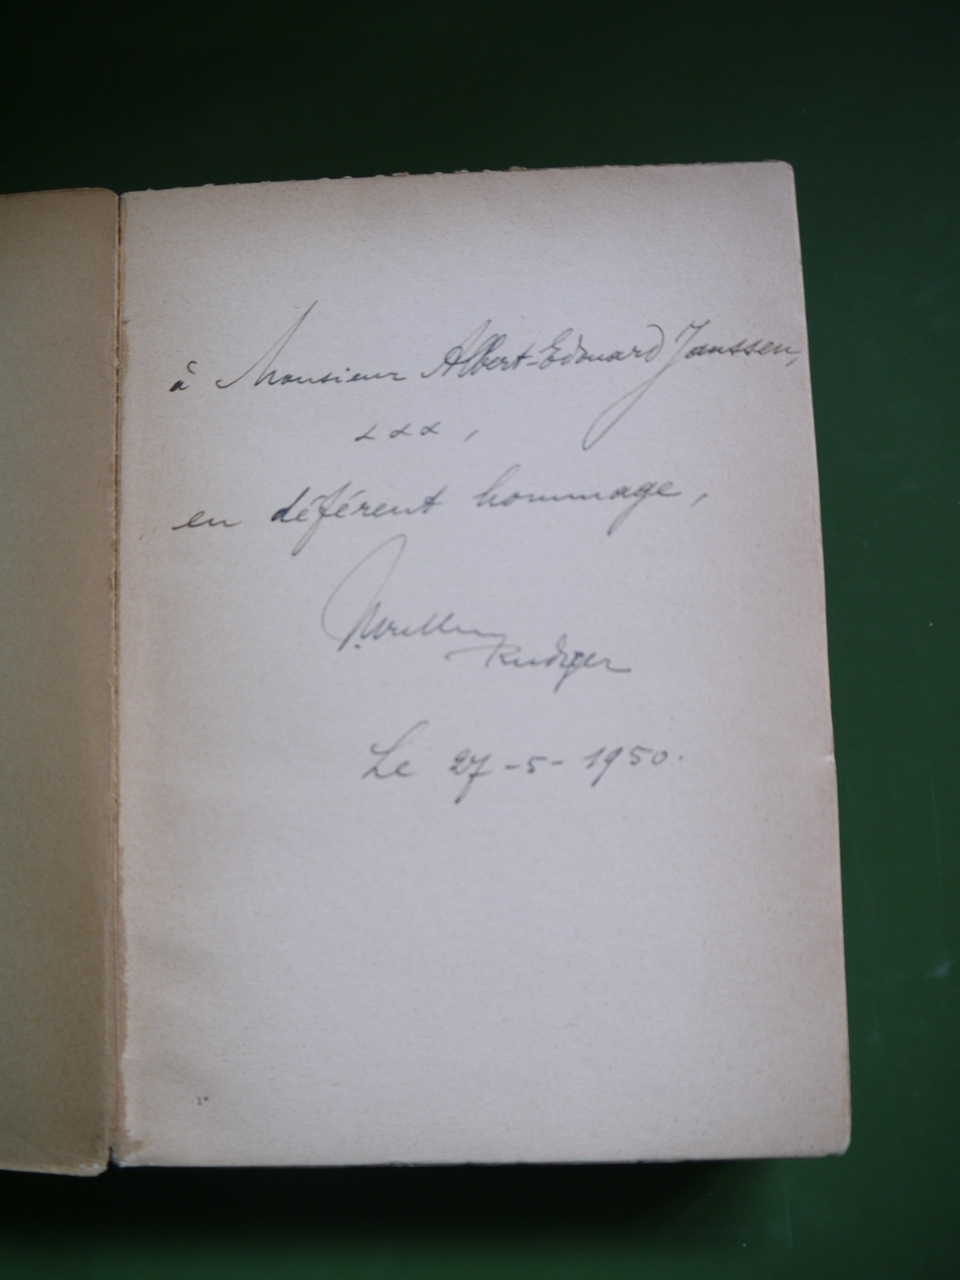 à Monsieur Albert-Edouard Janssen,
xxx,
en déférent hommage,
Rudiger
Le 27-5-1950.
1*